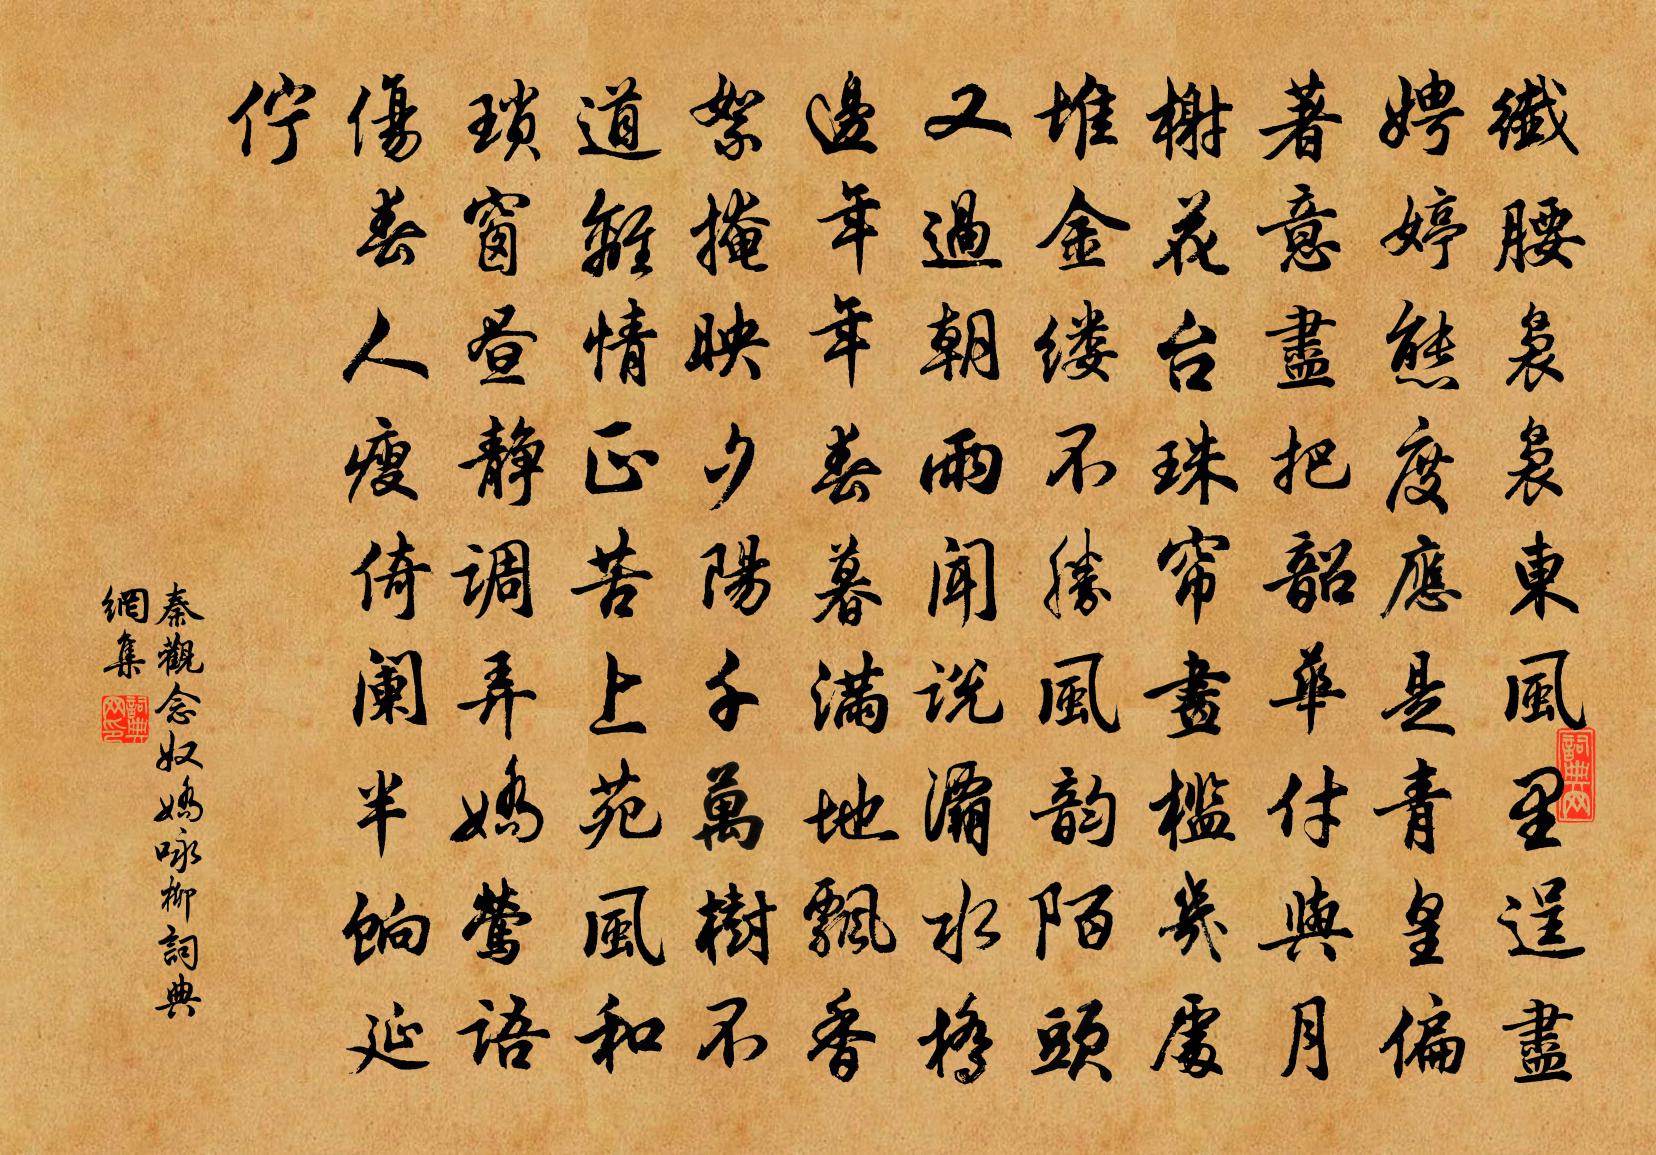 纖腰裊裊東風里逞盡
娉婷態度應是青皇偏
著意盡把韶華付與月
榭花台珠帘畫檻幾處
堆金缕不勝風韵陌頭
又過朝雨聞说灞水橋
邊年年春暮滿地飄香
絮掩映夕陽千萬樹不
道離情正苦上苑風和
瑣窗晝静調弄嬌鶯語
傷春人瘦倚闌半晌延
佇
秦觀念奴嬌咏柳詞典
網集
詞典网
詞典网印